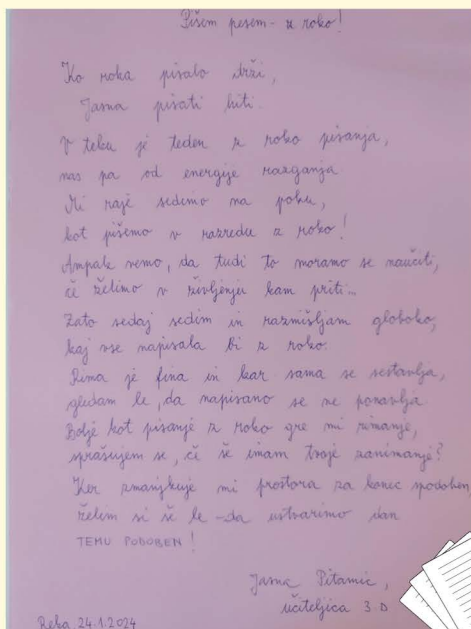 Pišem pesem - z roko!
Ko roka pisalo drži,
Jasna pisati hiti.
V teku je teden z roko pisanja,
nas pa od energije razganja
Mi raje sedimo na pohu,
kot pišemo v razredu z roko!
Ampak vemo, da tudi to moramo se naučiti,
če želimo v življenju kam priti...
Zato sedaj sedim in razmišljam globoko,
kaj vse napisala bi z roko.
Rima je fina in kar sama se sestavlja,
gledam le, da napisano se ne ponavlja.
Bolje kot pisanje z roko gre mi rimanje,
sprašujem se, če še imam tvoje zanimanje?
Ker zmanjkuje mi prostora za konec spodoben
želim si še le - da ustvarimo dan
TEMU PODOBEN!
Jasna Pitamic,
učiteljica 3. D
Reka, 24.1.2024